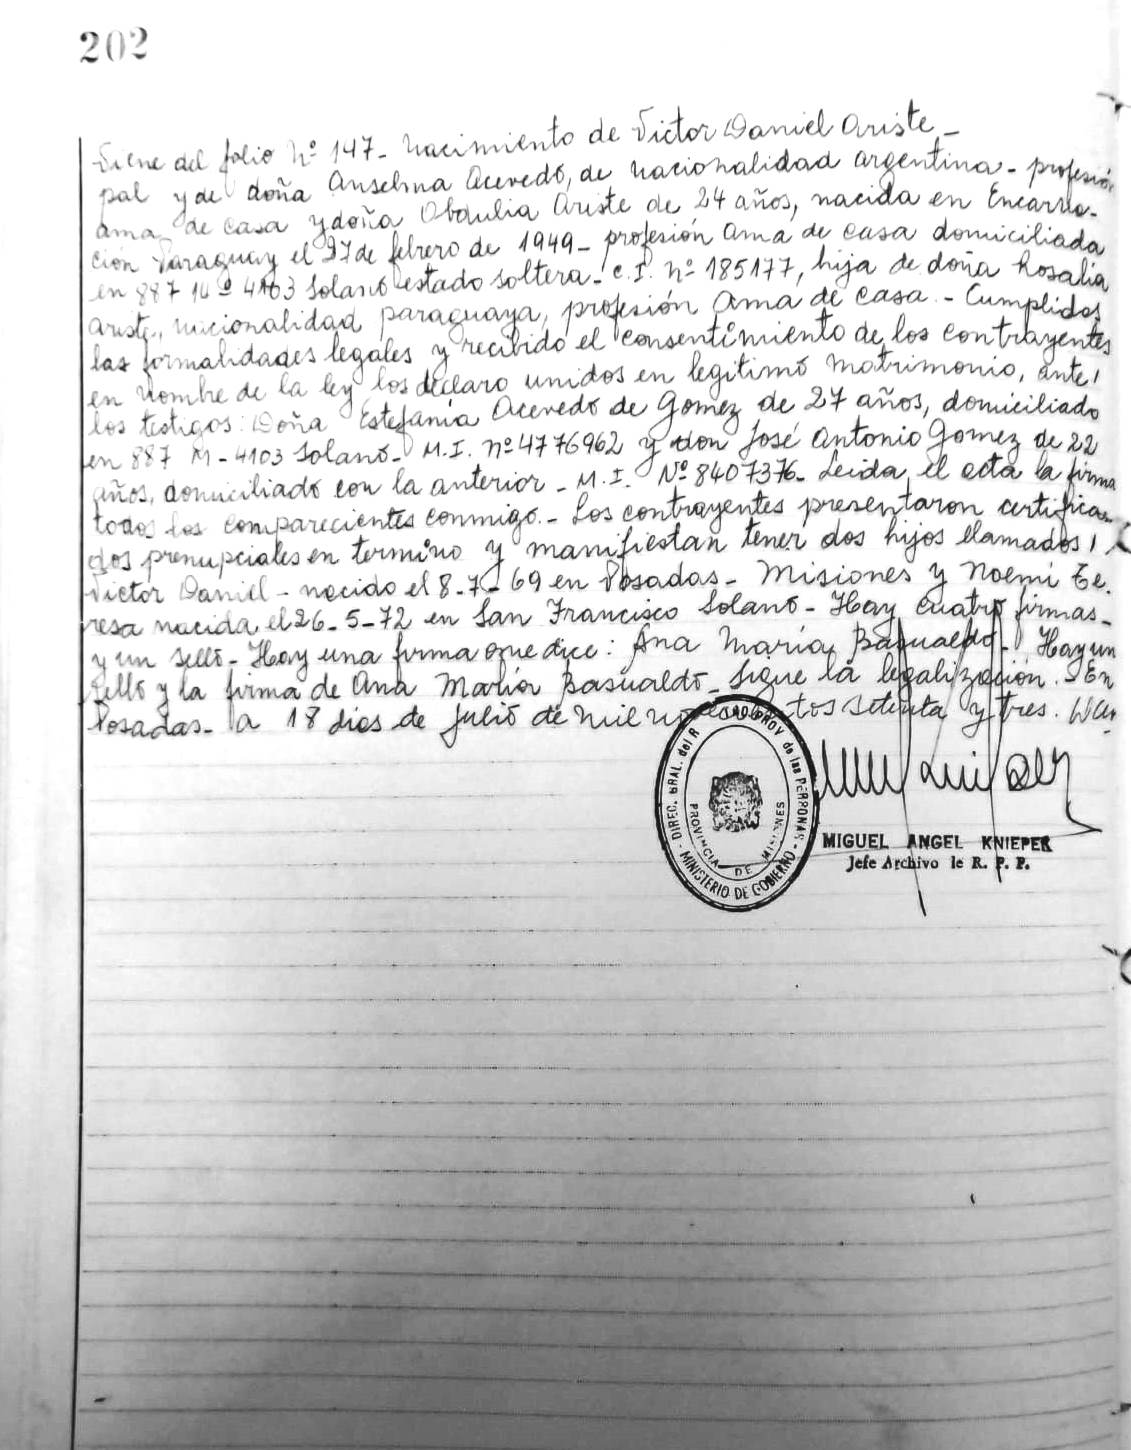 202
Viene del folio Nº 147- Nacimiento de Victor Daniel Ariste.-
pal y de doña Anselma Acevedo, de nacionalidad argentina - profesión
ama de casa y doña Obdulia Ariste de 24 años, nacida en Encarna-
ción Paraguay el 27 de febrero de 1949- profesión ama de casa domiciliada
en 887 4103 Solano estado soltera - C.I. nº 185177, hija de doña Rosalia
Ariste, nacionalidad paraguaya, profesión ama de casa.- Cumplidas
las formalidades legales y recibido el consentimiento de los contrayentes
en nombre de la ley los declaro unidos en legitimo matrimonio, ante
los testigos: Doña Estefanía Acevedo de Gomez de 27 años, domiciliado
en 887 M-4103 Solano- M.I. nº 4776962 y don José Antonio Gomez de 22
años, domiciliado con la anterior - M.I. Nº 8407376- Leida el acta la firma
todos los comparecientes conmigo.- Los contrayentes presentaron certifica-
dos prenupciales en termino y manifiestan tener dos hijos llamados
Victor Daniel - nacido el 8-7-69 en Posadas- Misiones y Noemi Te-
resa nacida el 26-5-72 en San Francisco Solano - Hay cuatro firmas-
y un sello- Hay una firma que dice: Ana María Basualdo- Hay un
sello y la firma de Ana María Basualdo- Sigue la legalización. En
Posadas- a 18 dias de Julio de mil novecientos setenta y tres.
DIREC. GRAL. del R PROV de las PERSONAS - MINISTERIO DE GOBIERNO -
PROVINCIA DE MISIONES
MIGUEL ANGEL KNIEPER
Jefe Archivo de R. P. P.